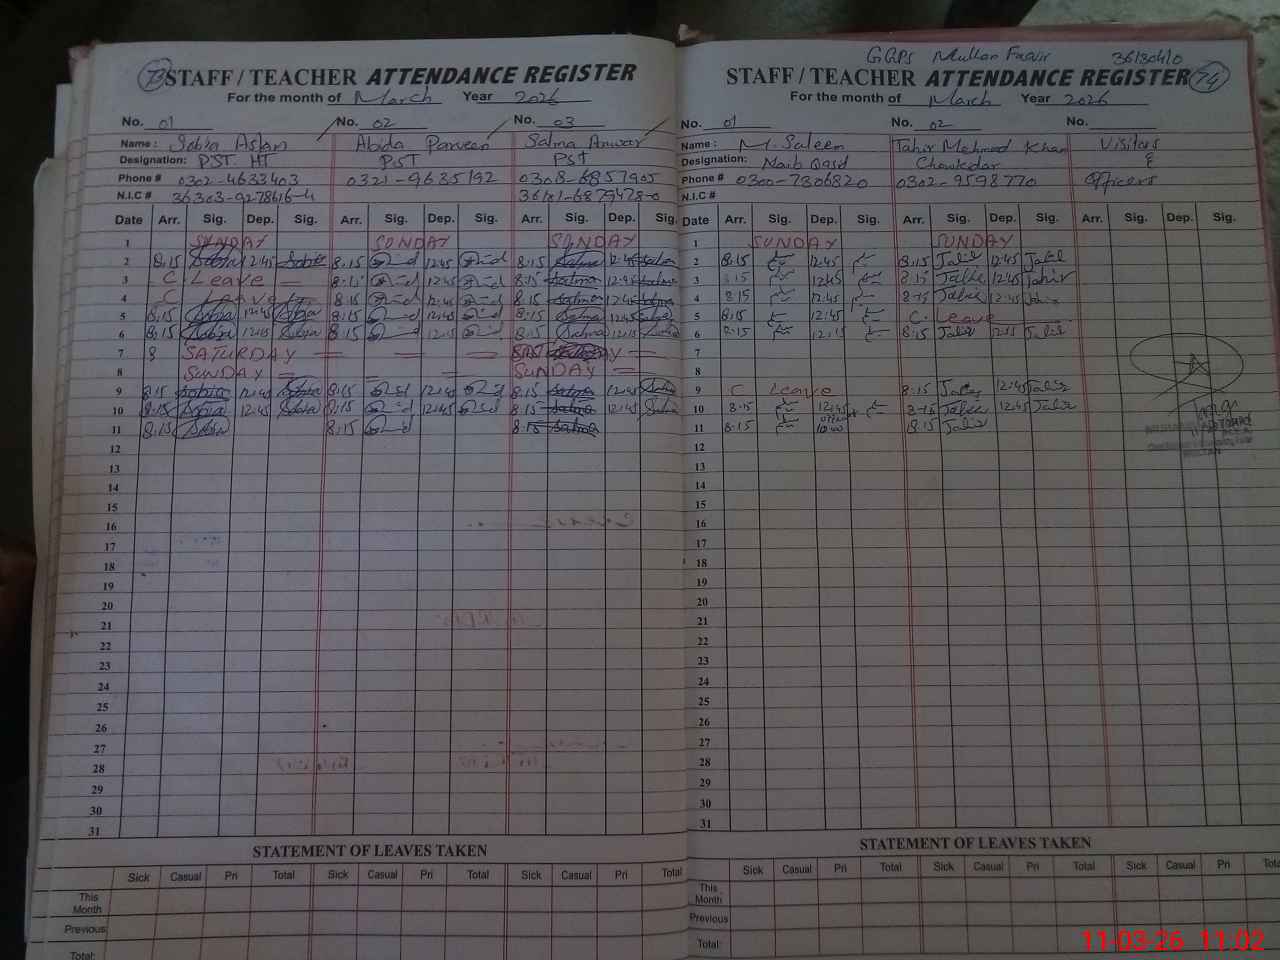 73 STAFF / TEACHER ATTENDANCE REGISTER
For the month of March Year 2026
No. 01 No. 02 No. 03
Name : Sobia Aslam Abida Parveen Salma Anwar
Designation: PST. HT PST PST
Phone # 0302-4633403 0321-9635192 0308-6857905
N.I.C # 36303-9278616-4 36101-6879428-0
Date Arr. Sig. Dep. Sig. Arr. Sig. Dep. Sig. Arr. Sig. Dep. Sig.
1 SUNDAY SUNDAY SUNDAY
2 8.15 Sobia 12:45 Sobia 8.15 12:45 8.15 Salma 12:45 Salma
3 C Leave 8.15 12:45 8.15 Salma 12:45 Salma
4 C Leave 8.15 12:45 8.15 Salma 12:45 Salma
5 8:15 Sobia 12:45 Sobia 8.15 12:45 8.15 Salma 12:45 Salma
6 8.15 Sobia 12:15 Sobia 8.15 12:15 8.15 Salma 12:15 Salma
7 SATURDAY
8 SUNDAY SUNDAY
9 8.15 Sobia 12:45 Sobia 8.15 12:45 8.15 Salma 12:45 Salma
10 8.15 Sobia 12:45 Sobia 8.15 12:45 8.15 Salma 12:45 Salma
11 8.15 Sobia 8.15 8.15 Salma
12
13
14
15
16
17
18
19
20
21
22
23
24
25
26
27
28
29
30
31
STATEMENT OF LEAVES TAKEN
Sick Casual Pri Total Sick Casual Pri Total Sick Casual Pri Total
This Month
Previous
Total:
GGPS 36130410
STAFF / TEACHER ATTENDANCE REGISTER 74
For the month of March Year 2026
No. 01 No. 02 No.
Name : M. Saleem Tahir Mehmood Khan Visitors
Designation: Naib Qasd Chowkedar &
Phone # 0300-7306820 0302-9598770 Officers
N.I.C #
Date Arr. Sig. Dep. Sig. Arr. Sig. Dep. Sig. Arr. Sig. Dep. Sig.
1 SUNDAY SUNDAY
2 8.15 12:45 8.15 Tahir 12:45 Tahir
3 8.15 12:45 8.15 Tahir 12:45 Tahir
4 8.15 12:45 8.15 Tahir 12:45 Tahir
5 8.15 12:45 C. Leave
6 8.15 12:15 8.15 Tahir Tahir
7
8
9 C Leave 8.15 Tahir 12:45 Tahir
10 8.15 12:45 8.15 Tahir 12:45 Tahir
11 8.15 10:40 8.15 Tahir
12
13
14
15
16
17
18
19
20
21
22
23
24
25
26
27
28
29
30
31
STATEMENT OF LEAVES TAKEN
Sick Casual Pri Total Sick Casual Pri Total Sick Casual Pri Total
This Month
Previous
Total:
11-03-26 11:02